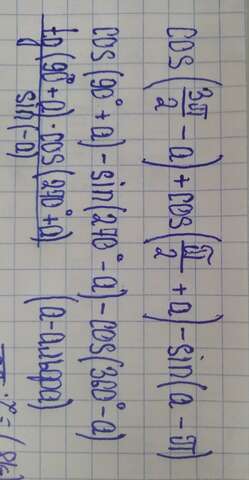 cos(3π/2 - a) + cos(π/2 + a) - sin(a - π)
cos(90° + a) - sin(270° - a) - cos(360° - a)
tg(90° + a) · cos(270° + a)
sin(-a)
(a-альфа)